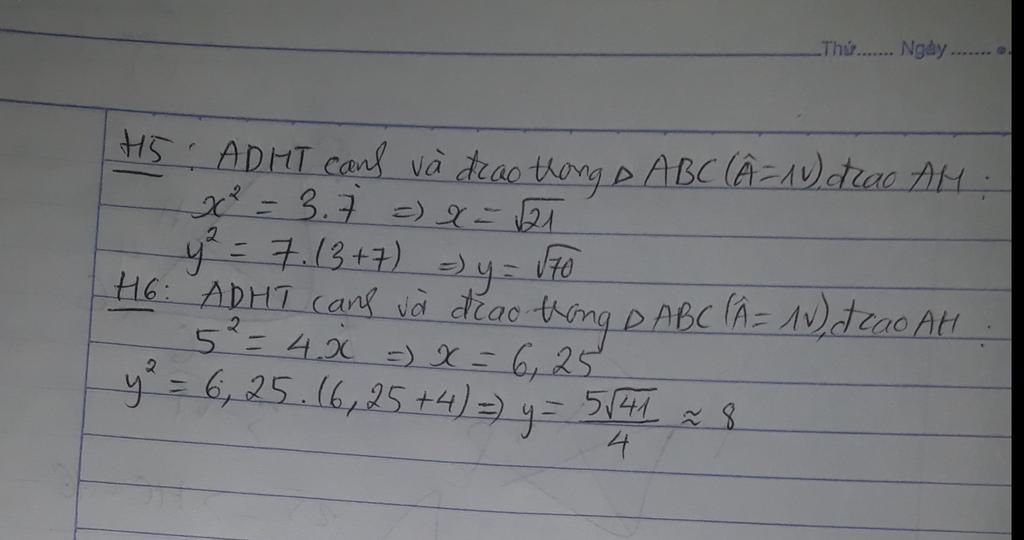 Thứ....... Ngày.......
H5 : ADHT cạnh và đcao trong △ ABC (Â=1V), đcao AH :
x² = 3.7 => x = √21
y² = 7.(3+7) => y = √70
H6 : ADHT cạnh và đcao trong △ ABC (Â = 1V), đcao AH :
5² = 4.x => x = 6,25
y² = 6,25.(6,25+4) => y = 5√41/4 ≈ 8